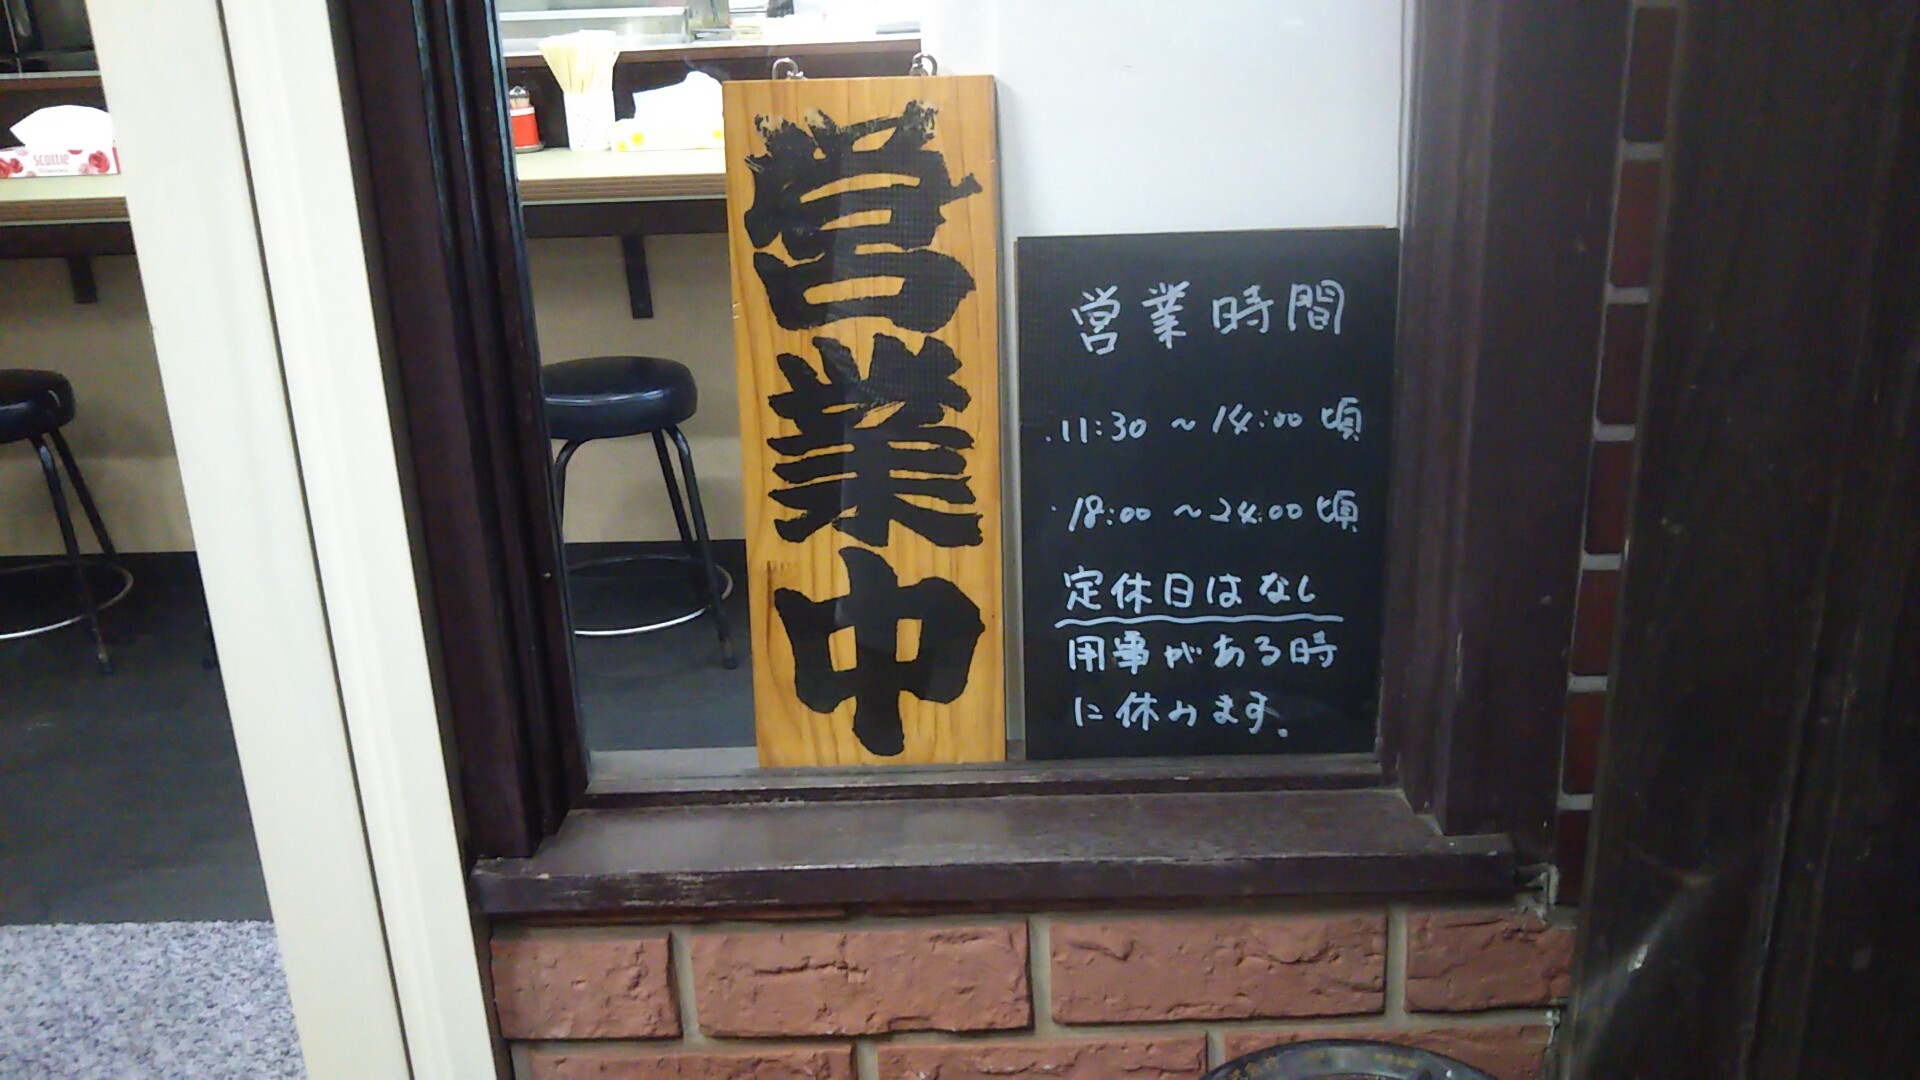 営業中
営業時間
・11:30 ～ 14:00 頃
・18:00 ～ 24:00 頃
定休日はなし
用事がある時
に休みます。
SCOTTIE